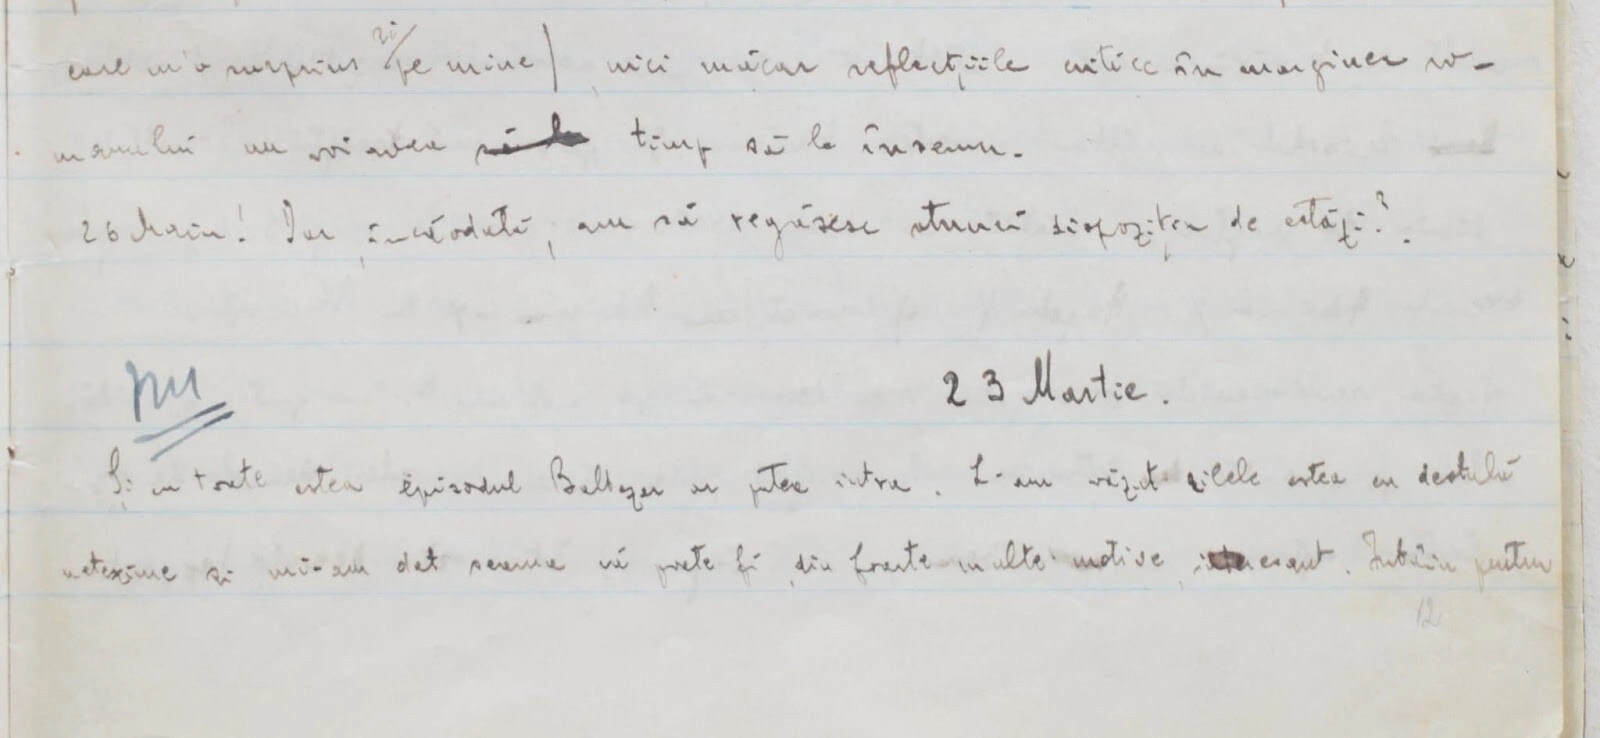 care m'a surprins și pe mine) nici măcar reflecțiile critice în marginea ro-
manului nu voi avea timp să le însemn.
26 Maiu! Dar, încăodată, am să regăsesc atunci dispoziția de astăzi?.
23 Martie.
Și cu toate astea episodul Baltazar ar putea intra. L-am văzut zilele astea cu destulă
netezime și mi-am dat seama că poate fi, din foarte multe motive, interesant. Întâiu pentru
12